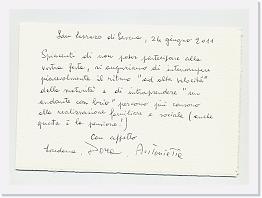 San Lazzaro di Savena, 24 giugno 2011
Spiacenti di non poter partecipare alla
vostra festa, vi auguriamo di interrompere
piacevolmente il ritmo "ad alta velocità"
della maturità e di intraprendere "un
andante con brio" percorso più consono
alla realizzazione familiare e sociale (anche
questa è la pensione!)
Con affetto
Loredana Dora Antonietta